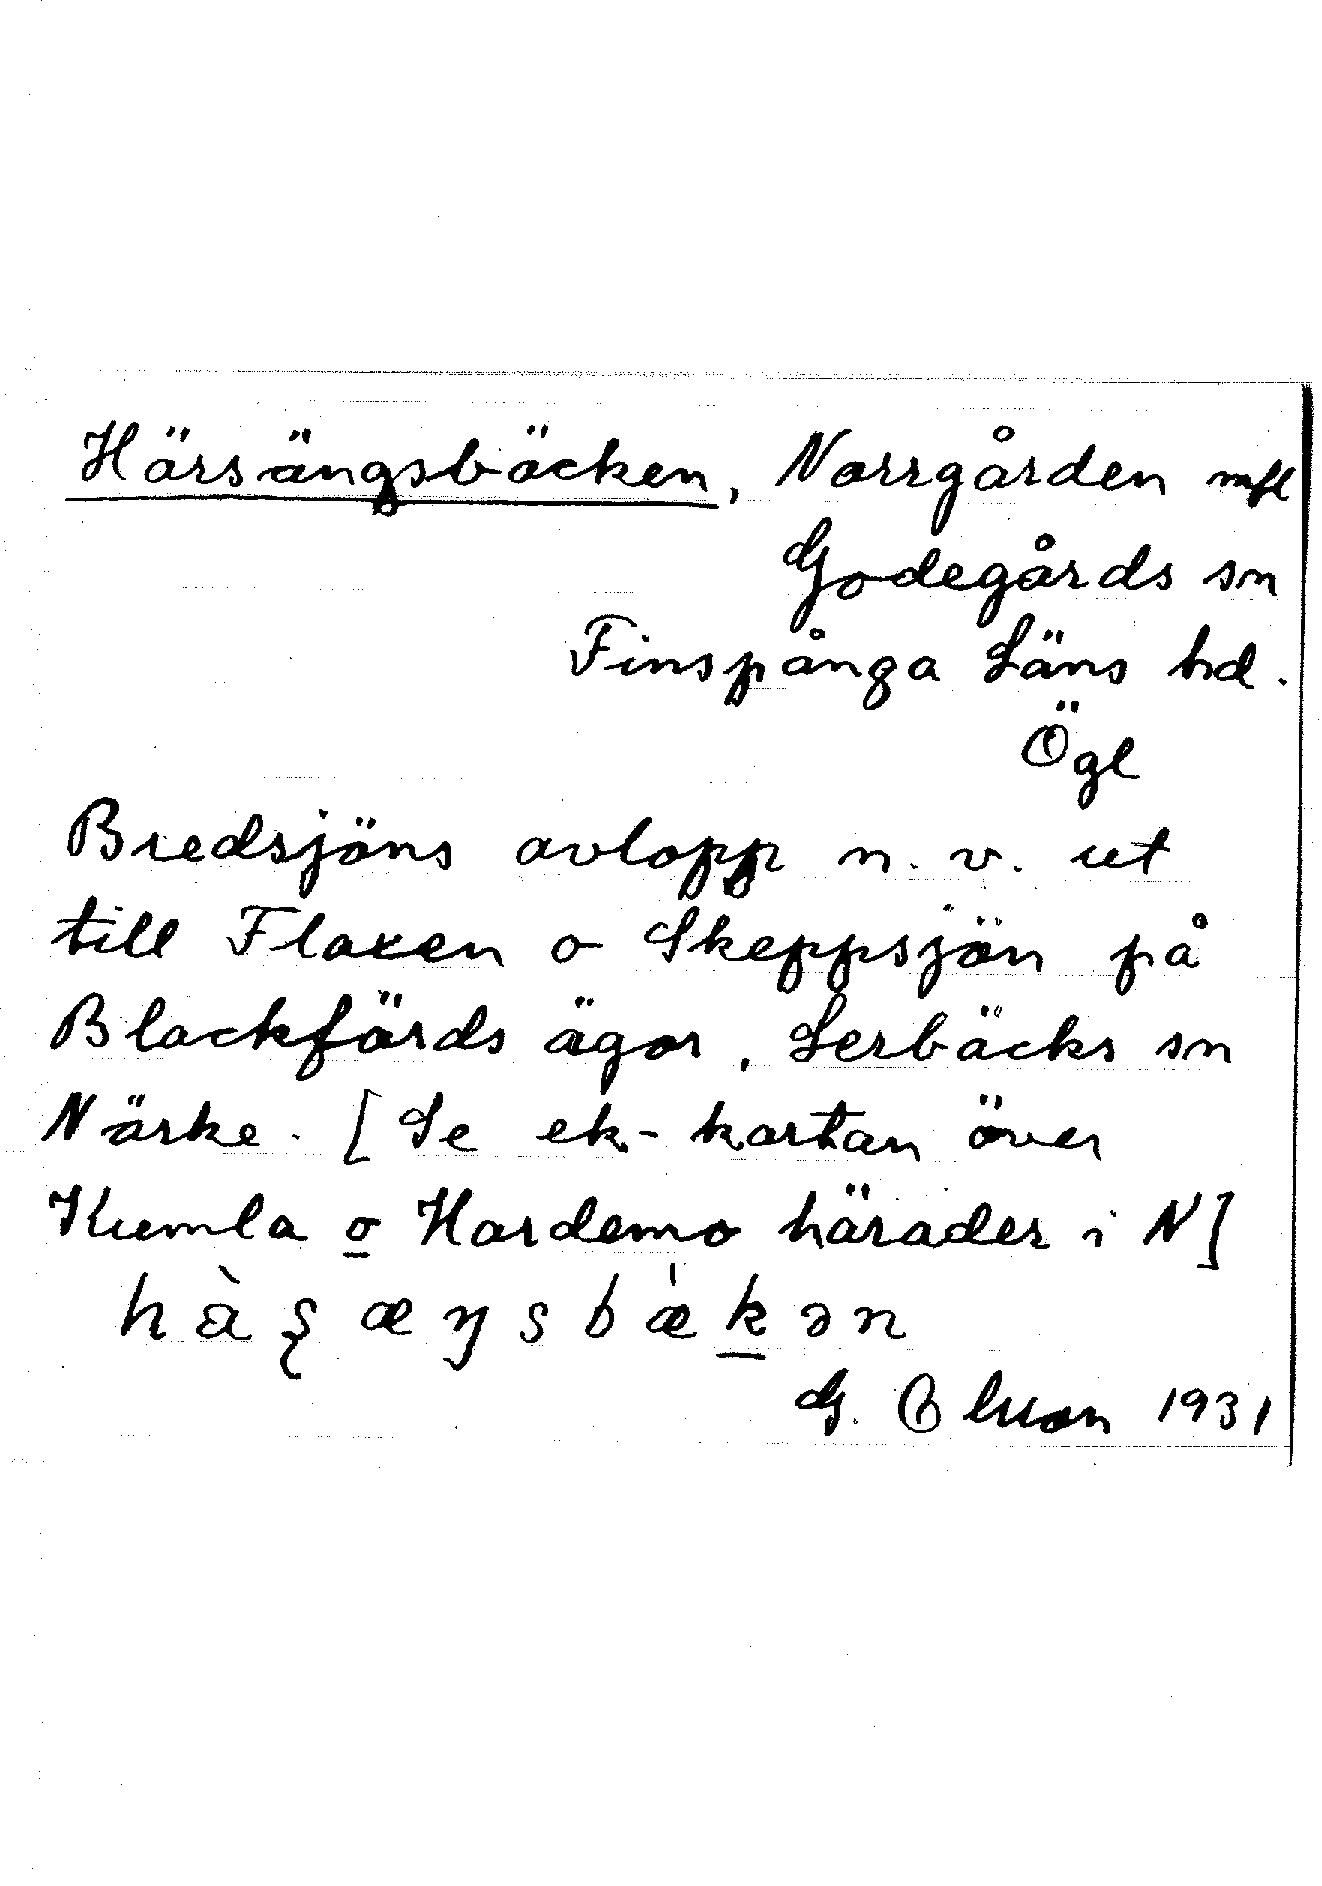 Härsängsbäcken, Norrgården mfl
Godegårds sn
Finspånga Läns hd.
Ögl
Bredsjöns avlopp n. v. ut
till Flaxen o Skeppsjön på
Blackfärds ägor, Lerbäcks sn
Närke. [Se ek-kartan över
Kumla o Hardemo härader i N]
G. Olsson 1931